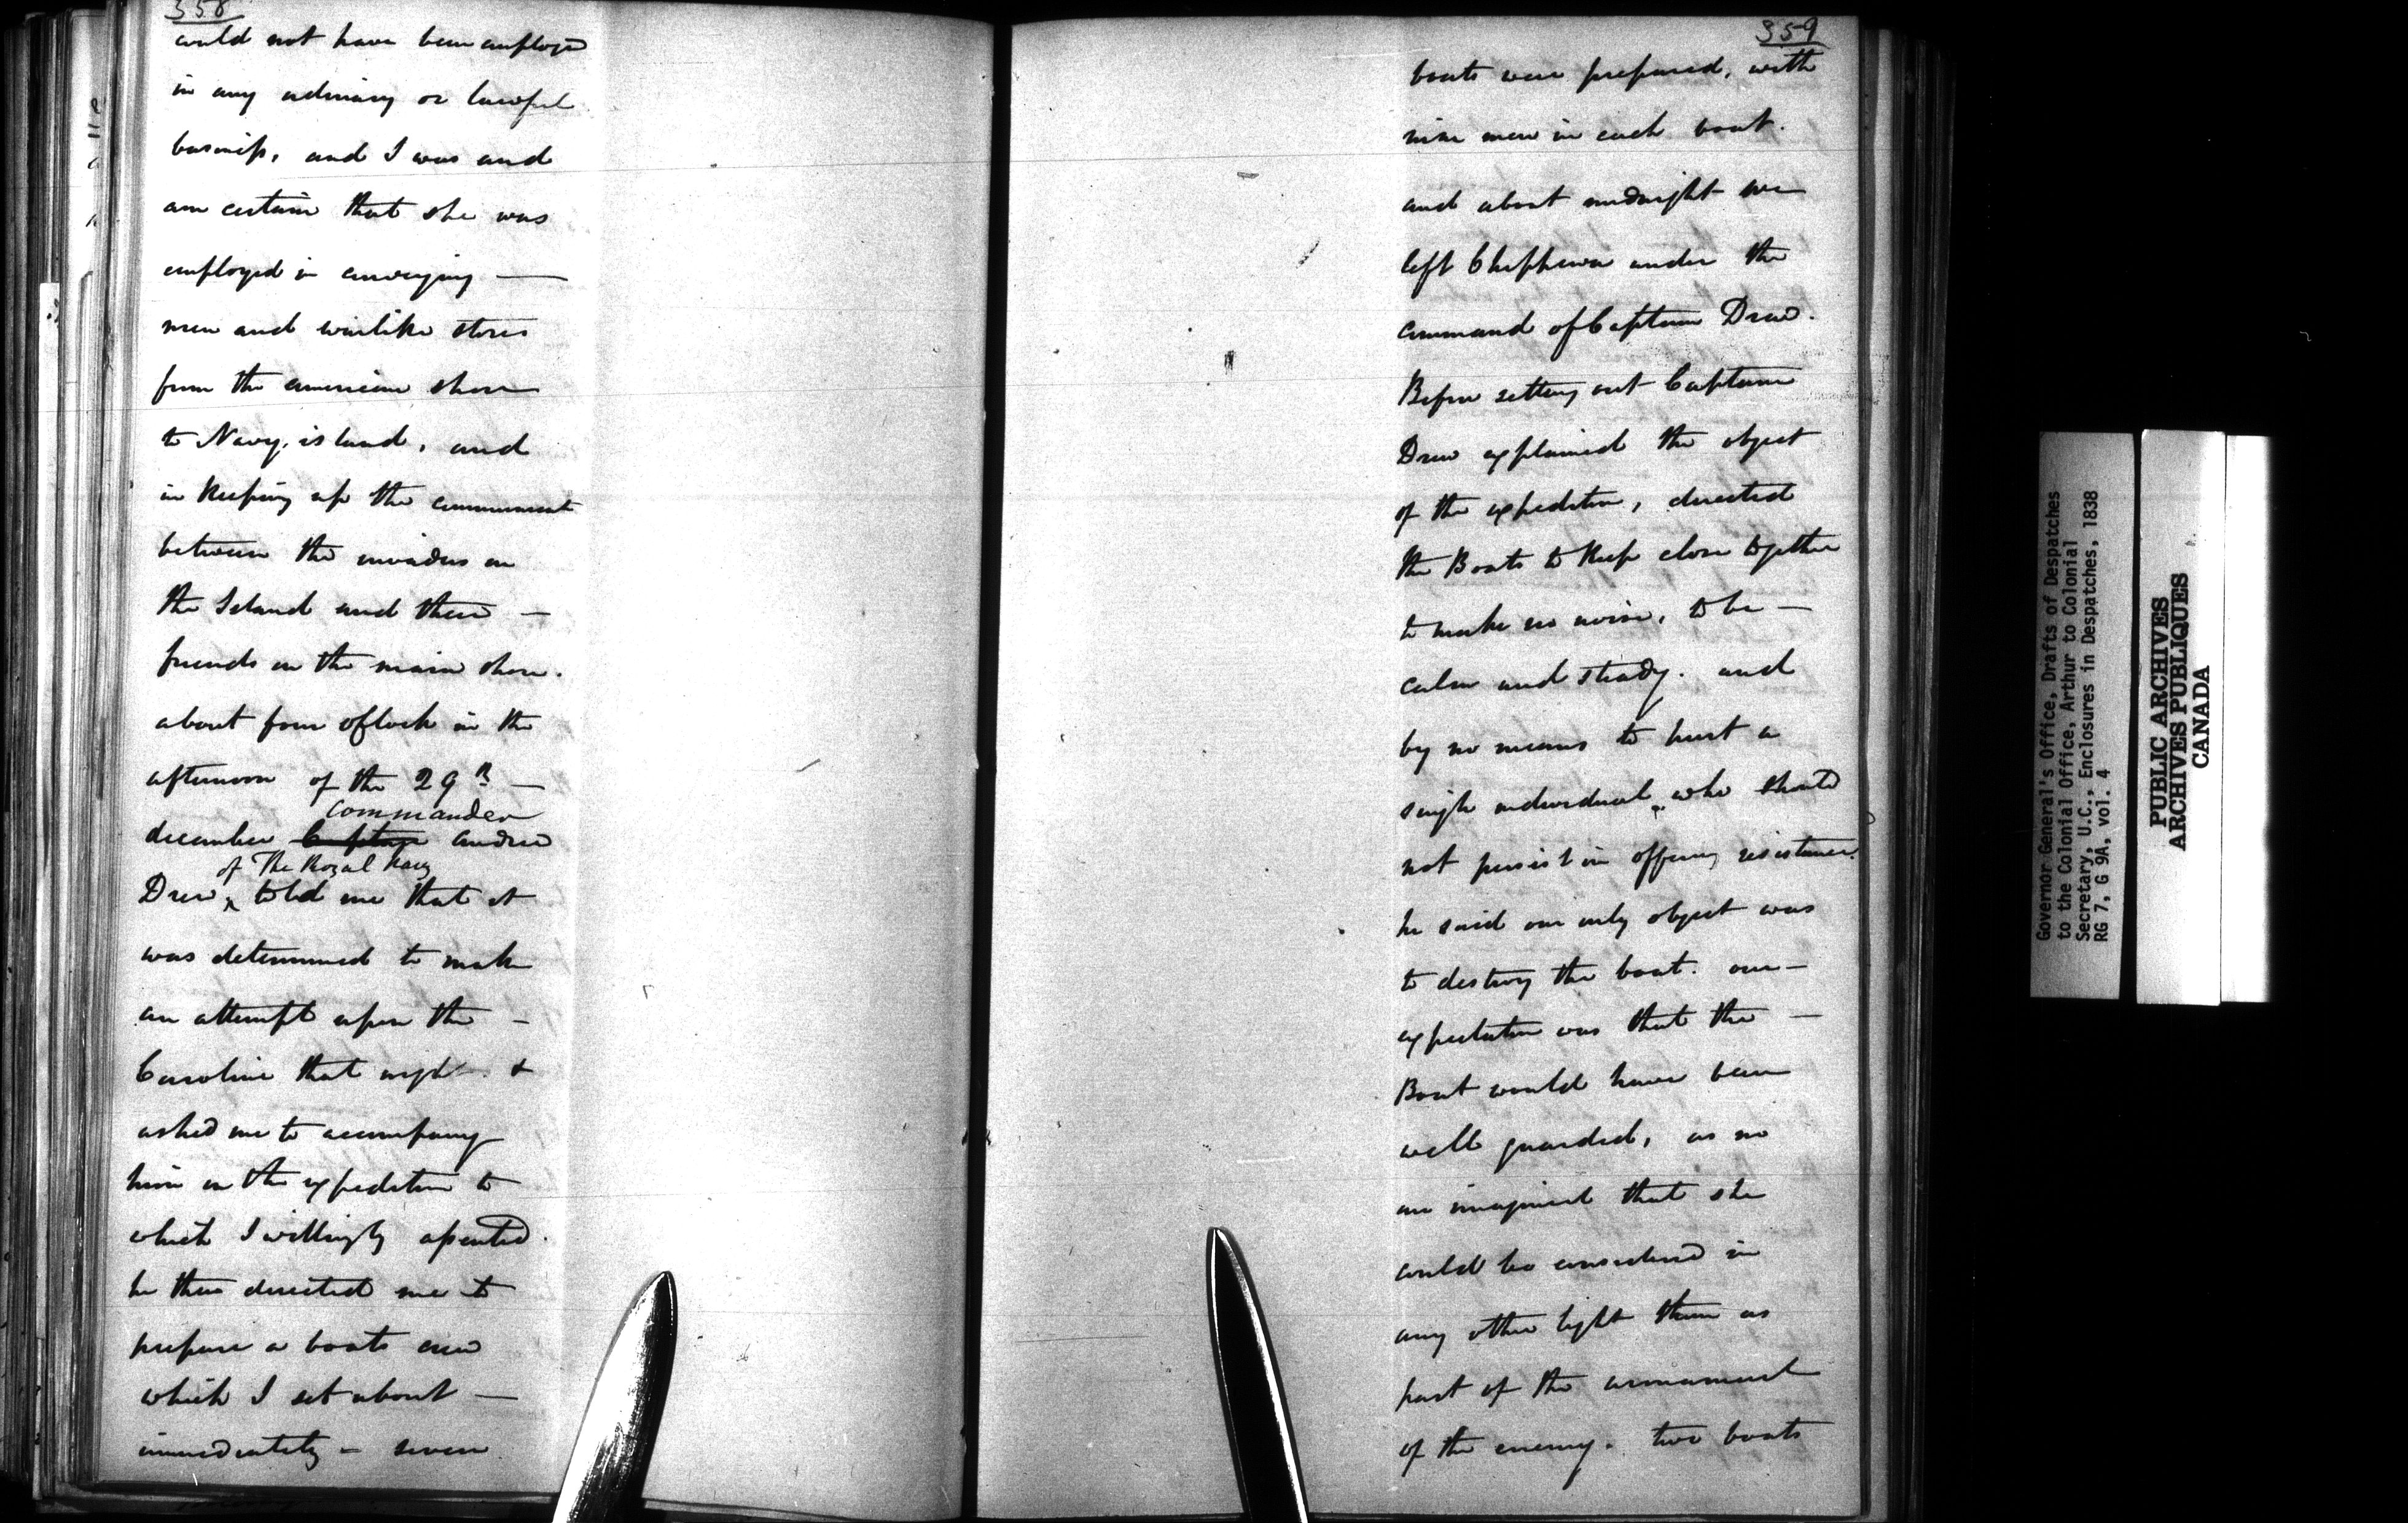 358
could not have been employed
in any ordinary or lawful
business, and I was and
am certain that she was
employed in conveying —
men and warlike stores
from the american shore
to Navy island, and
in keeping up the communicat
between the invaders on
the Island and their —
friends on the main shore.
about four oClock in the
afternoon of the 29th —
commander
december Captain Andrew
of The Royal Navy
Drew, told me that it
was determined to make
an attempt upon the —
Caroline that night. &
asked me to accompany
him on the expedition to
which I willingly assented.
he then directed me to
prepare a boats crew
which I set about —
immediately — seven
359
boats were prepared, with
nine men in each boat.
and about midnight we
left Chippewa under the
command of Captain Drew.
Before setting out Captain
Drew explained the object
of the expedition, directed
the Boats to keep close together
to make no noise, to be —
calm and steady. and
by no means to hurt a
single individual who should
not persist in offering resistance.
he said our only object was
to destroy the boat. our —
expectation was that the —
Boat would have been
well guarded, as no
one imagined that she
could be considered in
any other light than as
part of the armament
of the enemy. two boats
Governor General's Office, Drafts of Despatches
to the Colonial Office, Arthur to Colonial
Secretary, U.C., Enclosures in Despatches, 1838
RG 7, G 9A, vol. 4
PUBLIC ARCHIVES
ARCHIVES PUBLIQUES
CANADA